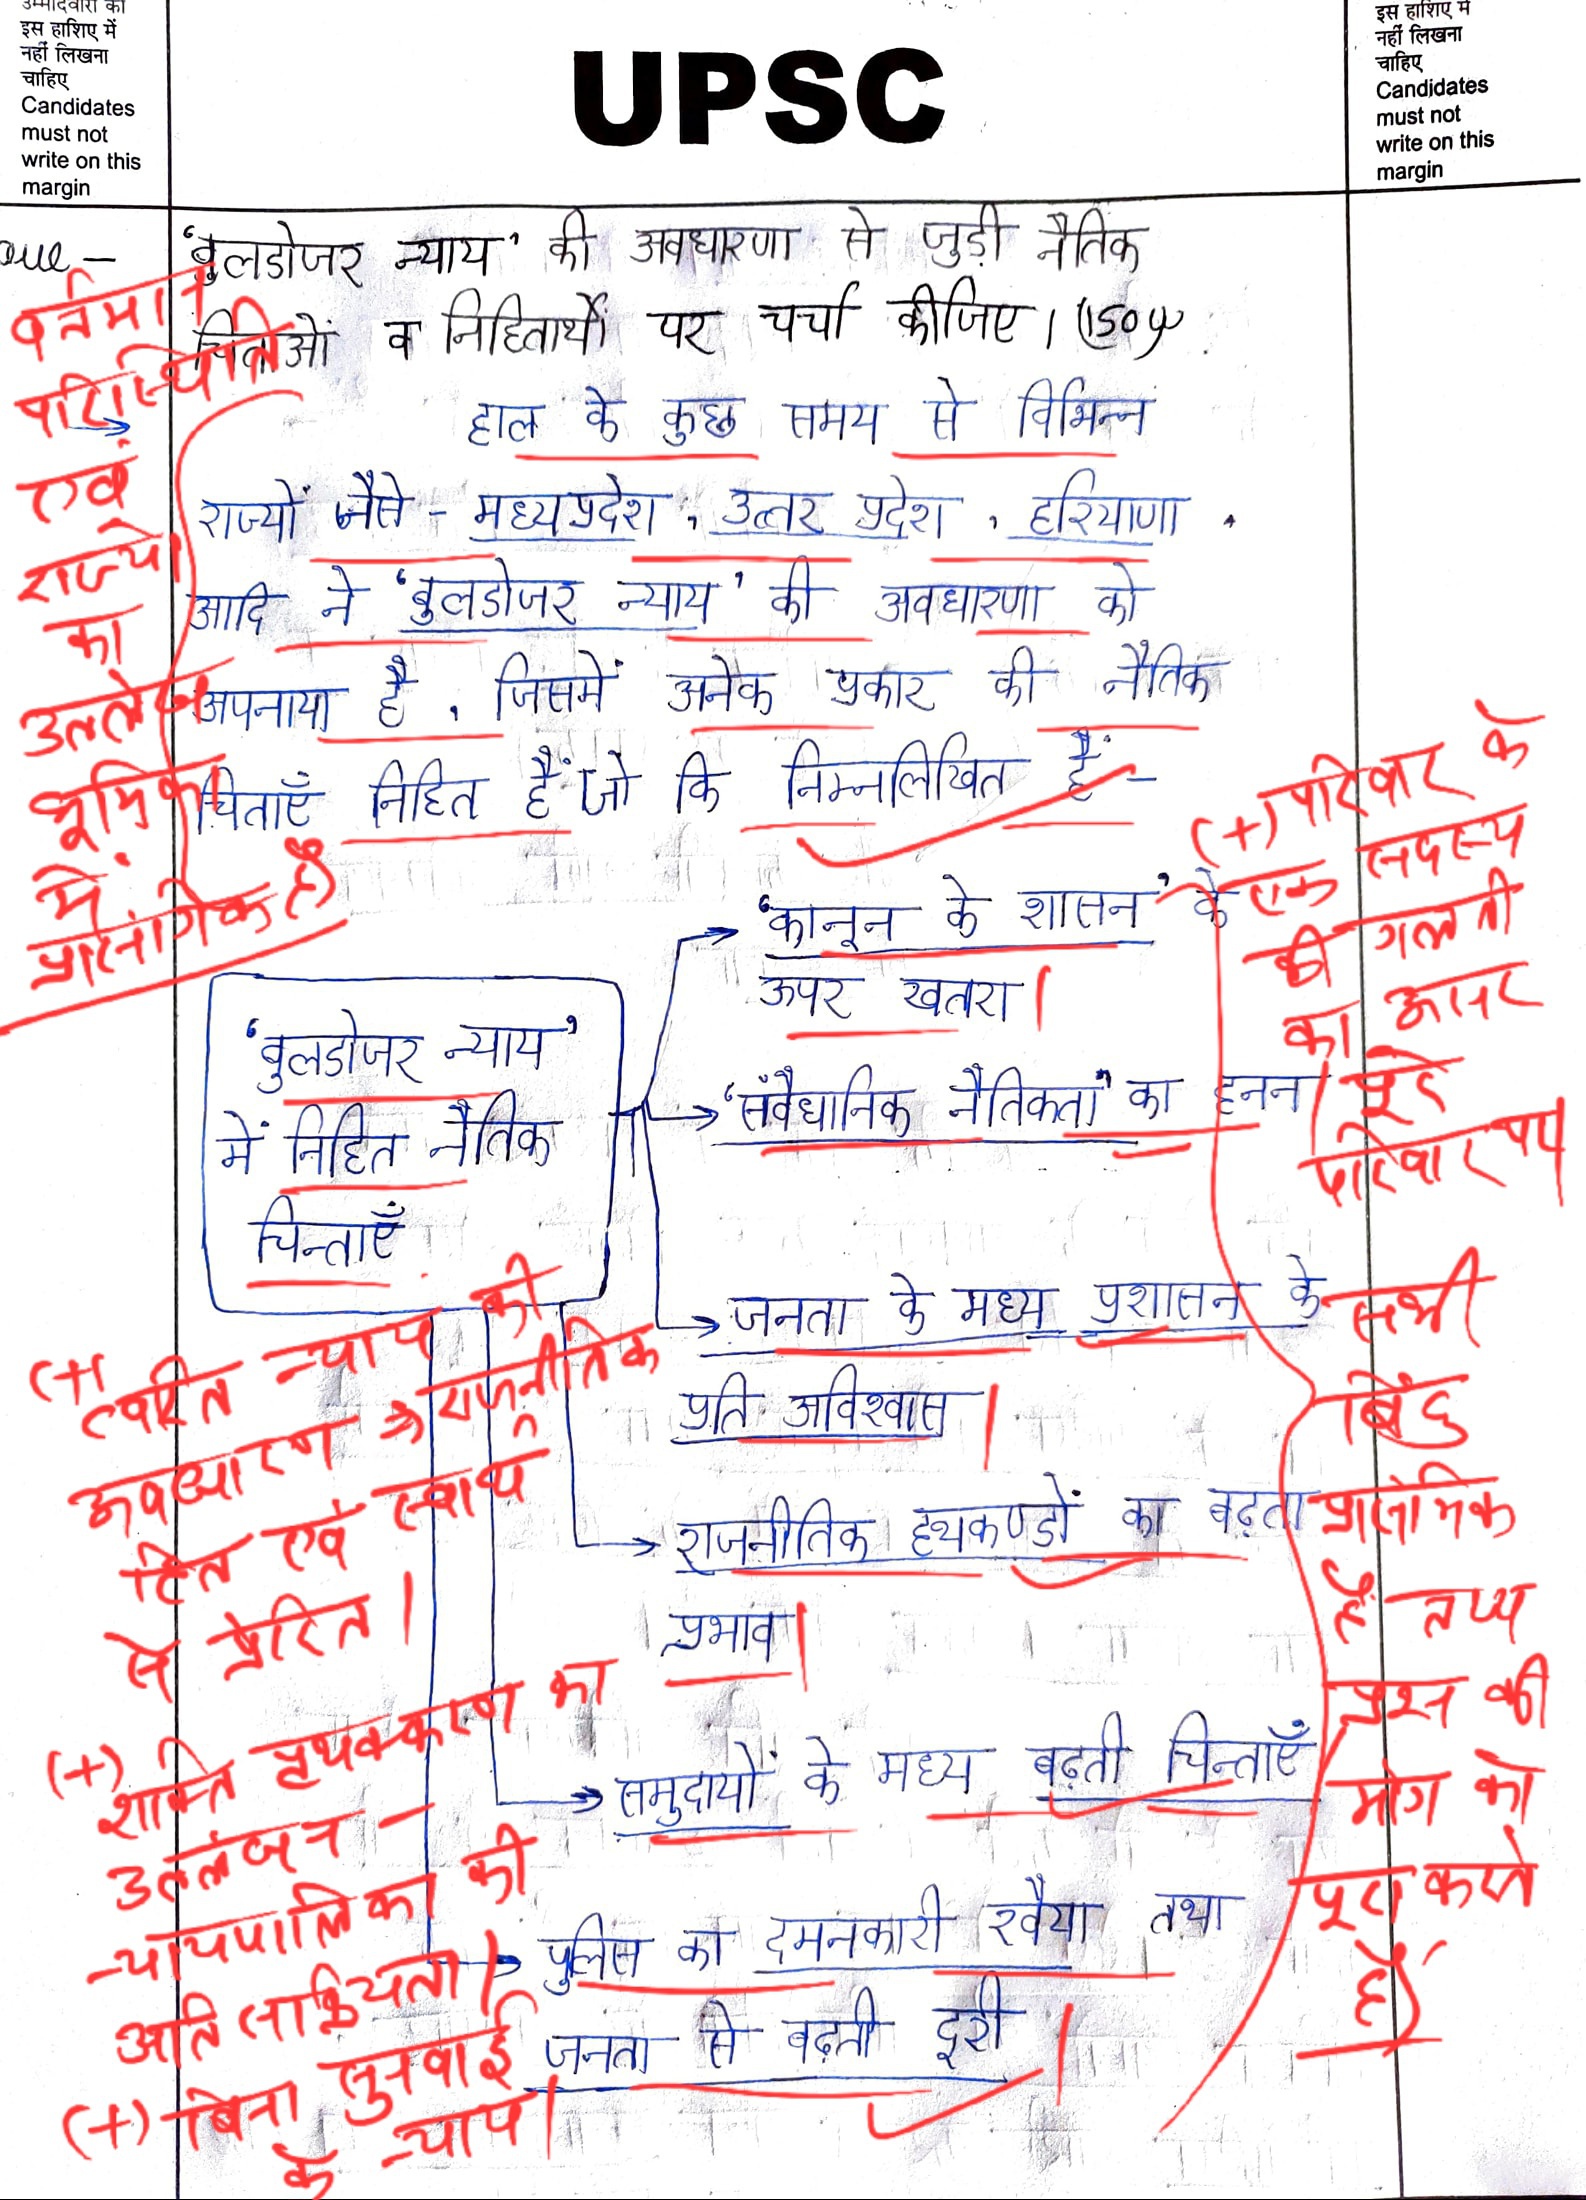 उम्मीदवारों को
इस हाशिए में
नहीं लिखना
चाहिए
Candidates
must not
write on this
margin
UPSC
इस हाशिए में
नहीं लिखना
चाहिए
Candidates
must not
write on this
margin
Que - 'बुलडोजर न्याय' की अवधारणा से जुड़ी नैतिक
चिंताओं व निहितार्थों पर चर्चा कीजिए। (150
हाल के कुछ समय से विभिन्न
राज्यों जैसे - मध्यप्रदेश, उत्तर प्रदेश, हरियाणा
आदि ने 'बुलडोजर न्याय' की अवधारणा को
अपनाया है, जिसमें अनेक प्रकार की नैतिक
चिताएँ निहित हैं जो कि निम्नलिखित हैं -
वर्तमान
परिस्थिति
एवं
राज्यों
का
उल्लेख
भूमिका
में
प्रासंगिक है
'बुलडोजर न्याय'
में निहित नैतिक
चिन्ताएँ
→ 'कानून के शासन' के
ऊपर खतरा।
→ 'संवैधानिक नैतिकता' का हनन।
→ जनता के मध्य प्रशासन के
प्रति अविश्वास।
→ राजनीतिक हथकण्डों का बढ़ता
प्रभाव।
→ समुदायों के मध्य बढ़ती चिन्ताएँ
→ पुलिस का दमनकारी रवैया तथा
जनता से बढ़ती दूरी।
(+) परिवार के
एक सदस्य
की गलती
का असर
पूरे
परिवार पर।
सभी
बिंदु
प्रासंगिक
हैं तथ्य
प्रश्न की
मांग को
पूरा करते
हैं
(+) त्वरित न्याय की
अवधारणा → राजनीतिक
हित एवं स्वार्थ
से प्रेरित।
(+) शक्ति पृथक्करण का
उल्लंघन -
न्यायपालिका की
अति सक्रियता।
(+) बिना सुनवाई
के न्याय।